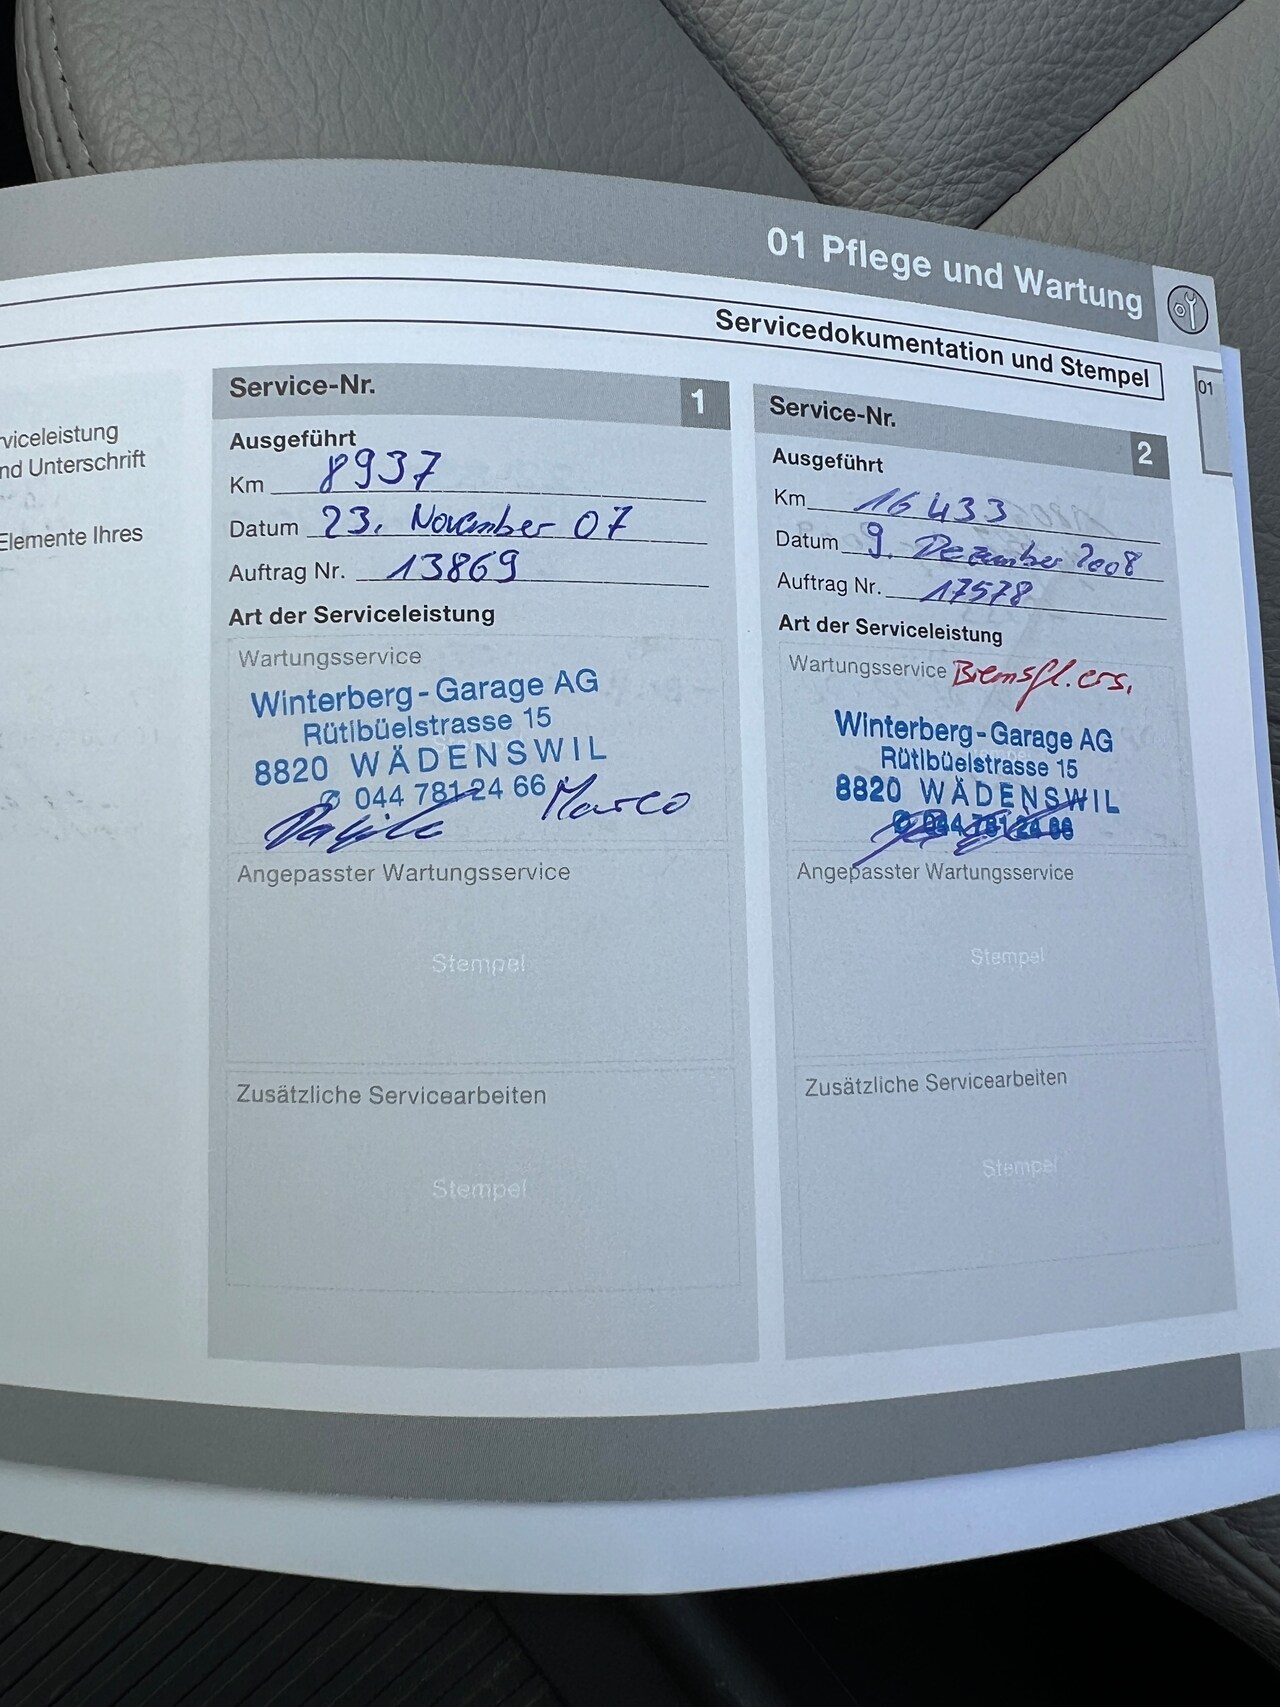 01 Pflege und Wartung
Servicedokumentation und Stempel
01
rviceleistung
nd Unterschrift
Elemente Ihres
Service-Nr. 1
Ausgeführt
Km 8937
Datum 23. November 07
Auftrag Nr. 13869
Art der Serviceleistung
Wartungsservice
Winterberg-Garage AG
Rütibüelstrasse 15
8820 WÄDENSWIL
✆ 044 781 24 66
Marco
Angepasster Wartungsservice
Stempel
Zusätzliche Servicearbeiten
Stempel
Service-Nr. 2
Ausgeführt
Km 16433
Datum 9. Dezember 2008
Auftrag Nr. 17578
Art der Serviceleistung
Wartungsservice Bremsfl. ers.
Winterberg-Garage AG
Rütibüelstrasse 15
8820 WÄDENSWIL
✆ 044 781 24 66
Angepasster Wartungsservice
Stempel
Zusätzliche Servicearbeiten
Stempel